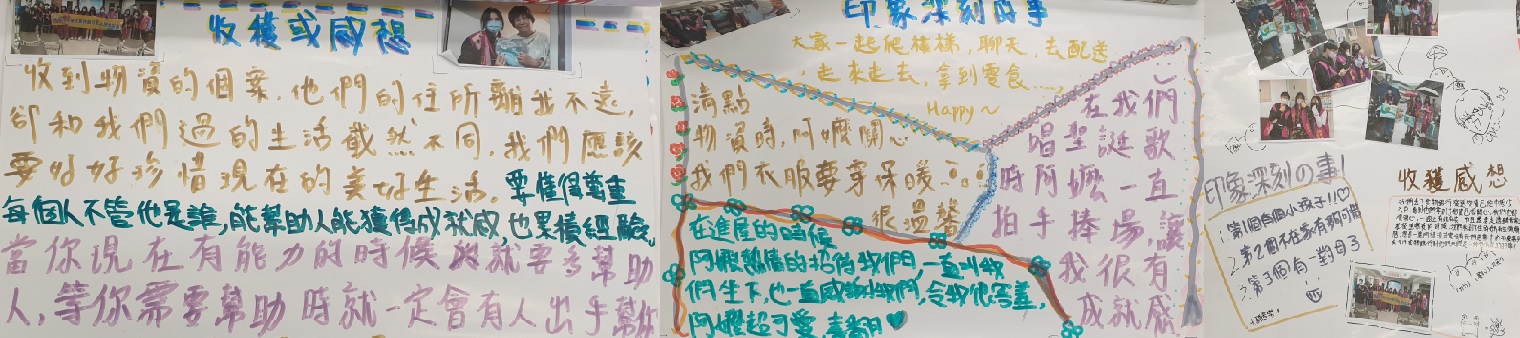 收獲或感想
收到物資的個案,他們的住所離我不遠,
卻和我們過的生活截然不同,我們應該
要好好珍惜現在的美好生活。要懂得尊重
每個人不管他是誰,能幫助人能獲得成就感,也累積經驗。
當你現在有能力的時候就要多幫助
人,等你需要幫助時就一定會有人出手幫你
印象深刻的事
大家一起爬樓梯,聊天,去配送
走來走去,拿到零食....,
Happy~
清點
物資時,阿嬤關心
我們衣服要穿保暖
很溫馨
在我們
唱聖誕歌
時阿嬤一直
拍手捧場讓
我很有
成就感
在進屋的時候
阿嬤熱情的招待我們,一直叫我
們坐下,也一直感謝我們,令我很害羞,
阿嬤超可愛,
印象深刻の事!
1.第1個有個小孩子!!♡
2.第2個不在家有夠可惜
3.第3個有一對母子
收穫感想